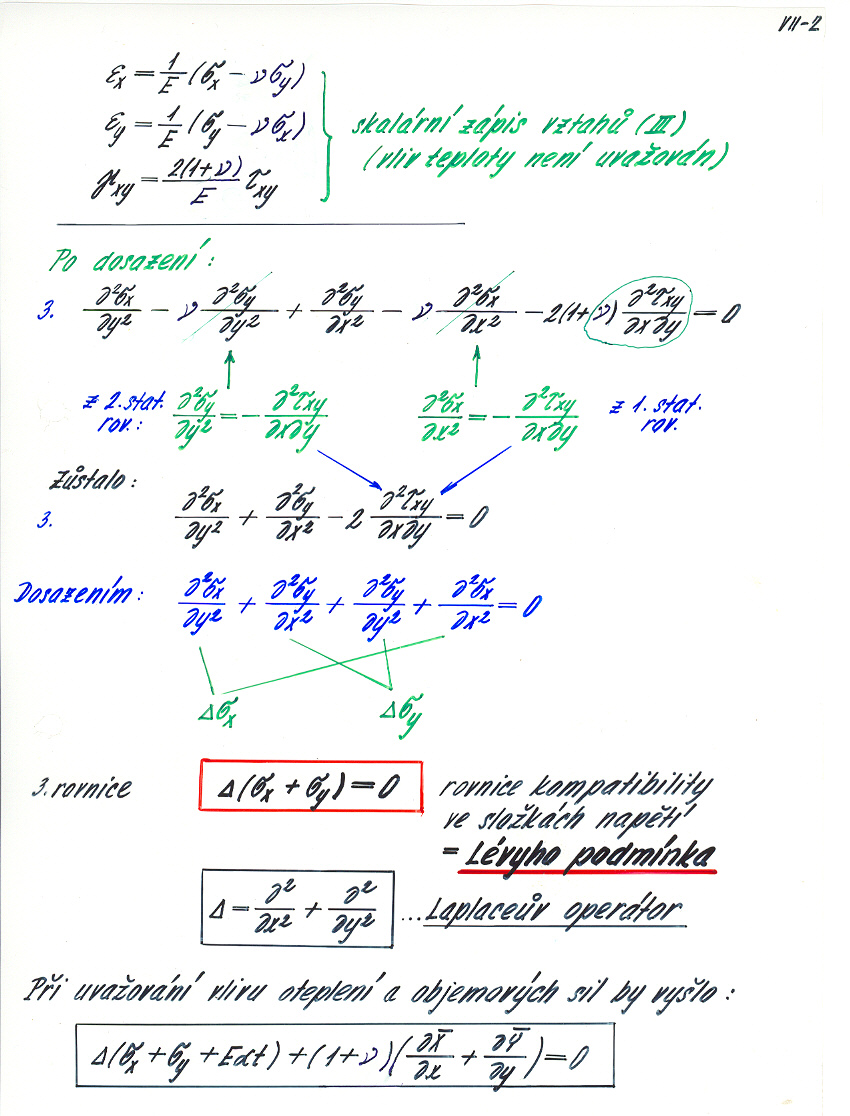 VII-2
εx = 1/E (σx − νσy)
εy = 1/E (σy − νσx)
γxy = 2(1+ν)/E τxy
skalární zápis vztahů (III)
(vliv teploty není uvažován)
Po dosazení:
3. ∂²σx/∂y² − ν ∂²σy/∂y² + ∂²σy/∂x² − ν ∂²σx/∂x² − 2(1+ν) ∂²τxy/∂x∂y = 0
z 2.stat. rov.: ∂²σy/∂y² = − ∂²τxy/∂x∂y
∂²σx/∂x² = − ∂²τxy/∂x∂y z 1. stat. rov.
Zůstalo:
3. ∂²σx/∂y² + ∂²σy/∂x² − 2 ∂²τxy/∂x∂y = 0
Dosazením: ∂²σx/∂y² + ∂²σy/∂x² + ∂²σy/∂y² + ∂²σx/∂x² = 0
Δσx Δσy
3. rovnice Δ(σx + σy) = 0 rovnice kompatibility
ve složkách napětí
= Lévyho podmínka
Δ = ∂²/∂x² + ∂²/∂y² ...Laplaceův operátor
Při uvažování vlivu oteplení a objemových sil by vyšlo:
Δ(σx + σy + Eαt) + (1+ν)(∂X̄/∂x + ∂Ȳ/∂y) = 0